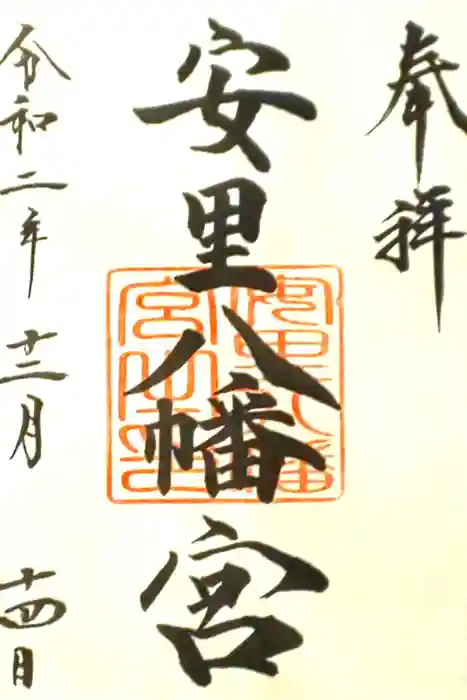 奉拝
安里八幡宮
安里八幡宮之印
令和二年十二月十四日